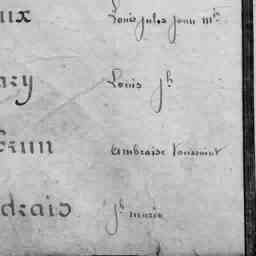 ux Louis jules jean M^ie
ary Louis J^h
brun Ambroise Toussaint
drais J^h marie